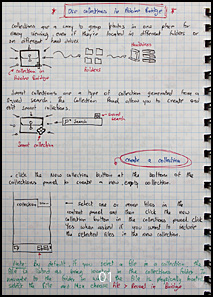 Use collections in Adobe Bridge
Collections are a way to group photos in one place for
easy viewing, even if they're located in different folders or
on different hard drives.
collection in
Folders
Smart collections are a type of collection generated from a
saved search. The Collection Panel allows you to create and
edit Smart collections.
Search
Smart collection
Create a collection
. click the New collection button at the bottom of the
collections panel to create a new, empty collection.
collections
Select one or more files in the
content panel and then click the new
collection button in the collections panel. click
Yes when asked if you want to include
the selected files in the new collection.
Note: by default, if you select a file in a collection, the
file is listed as being
navigate to the folder
the file and then choose File > Reveal in Bridge
01